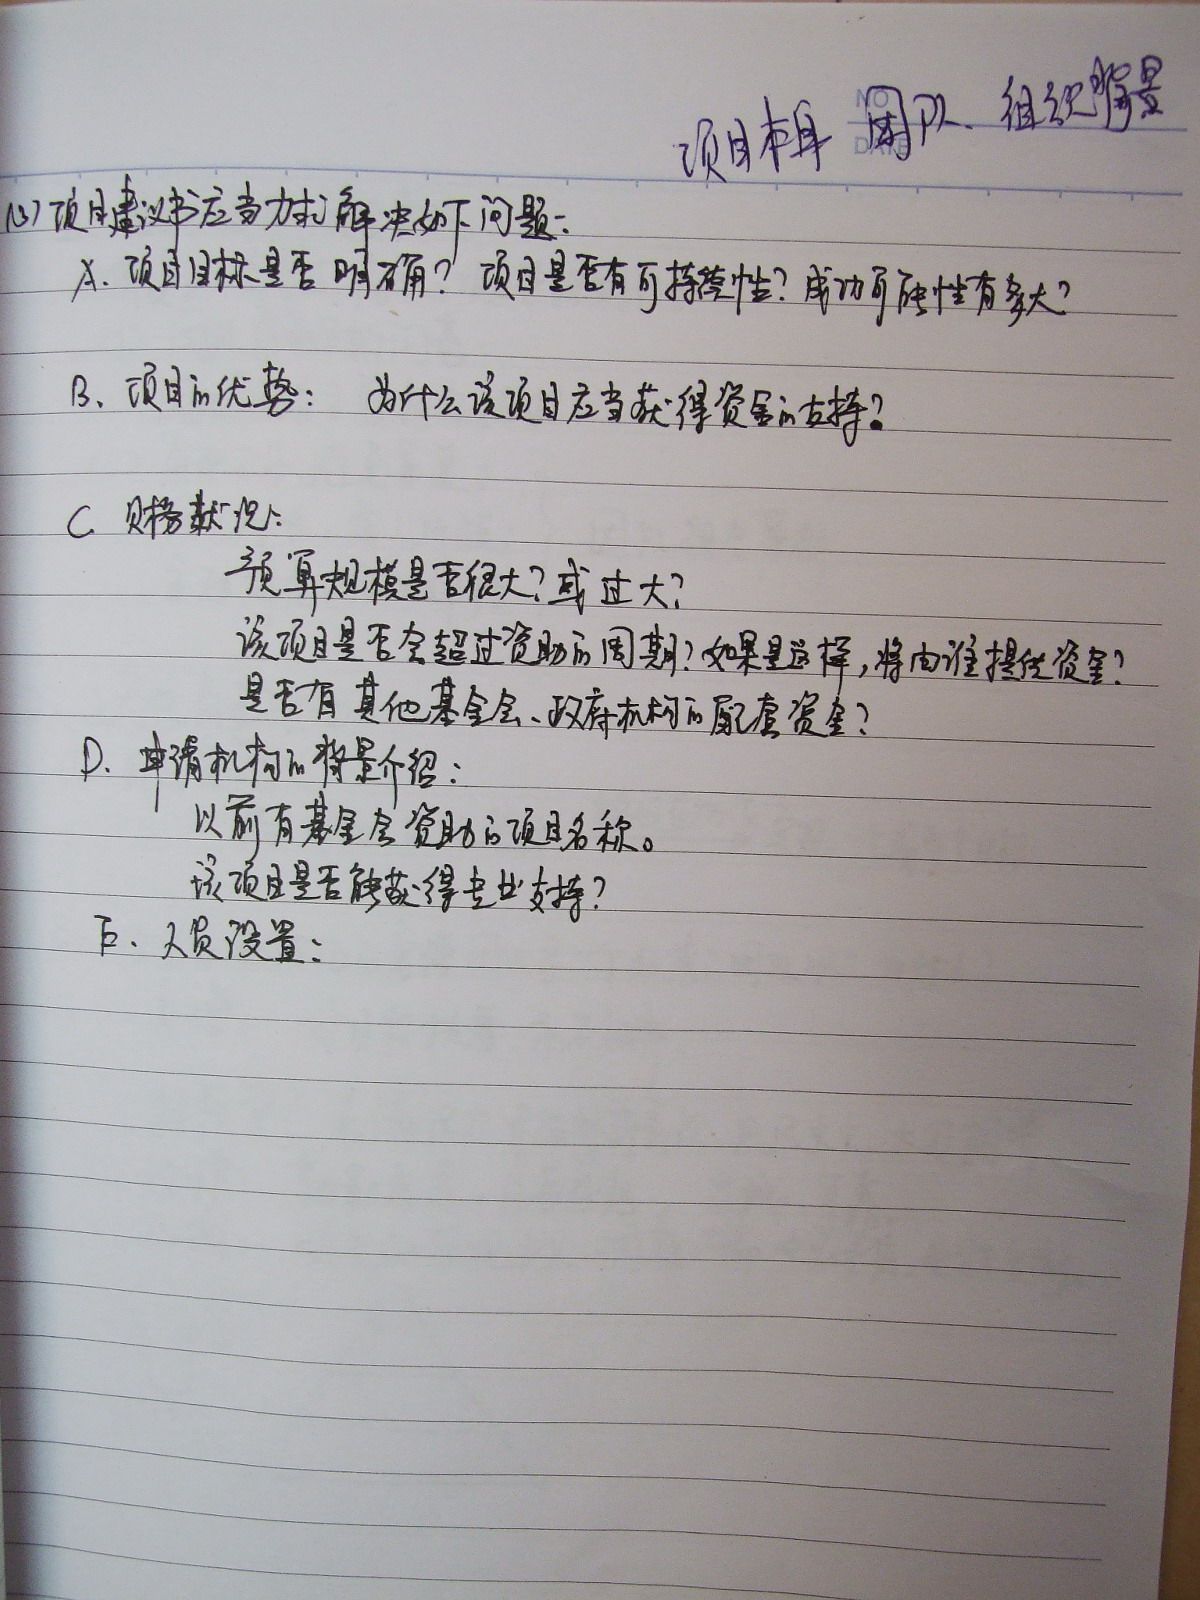 NO
DATE
项目本身 团队、组织背景
(3) 项目建议书应当力求解决如下问题：
A. 项目目标是否明确？ 项目是否有可持续性？成功可能性有多大？
B、项目的优势： 为什么该项目应当获得资金的支持？
C 财务状况：
预算规模是否很大？或过大？
该项目是否会超过资助的周期？如果是这样，将由谁提供资金？
是否有其他基金会、政府机构的配套资金？
D. 申请机构的背景介绍：
以前有基金会资助的项目名称。
该项目是否能获得专业支持？
E、人员设置：